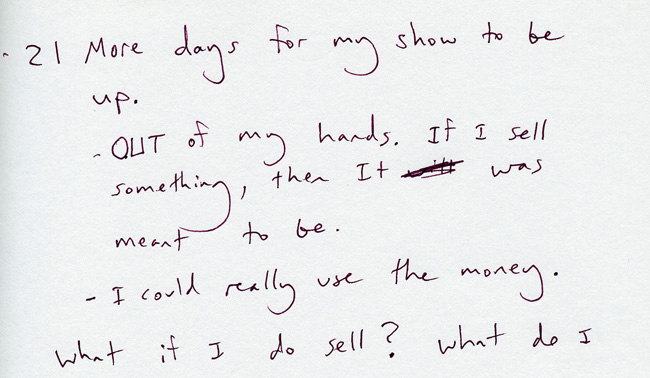 - 21 More days for my show to be
up.
- OUT of my hands. If I sell
something, then It was
meant to be.
- I could really use the money.
What if I do sell? What do I